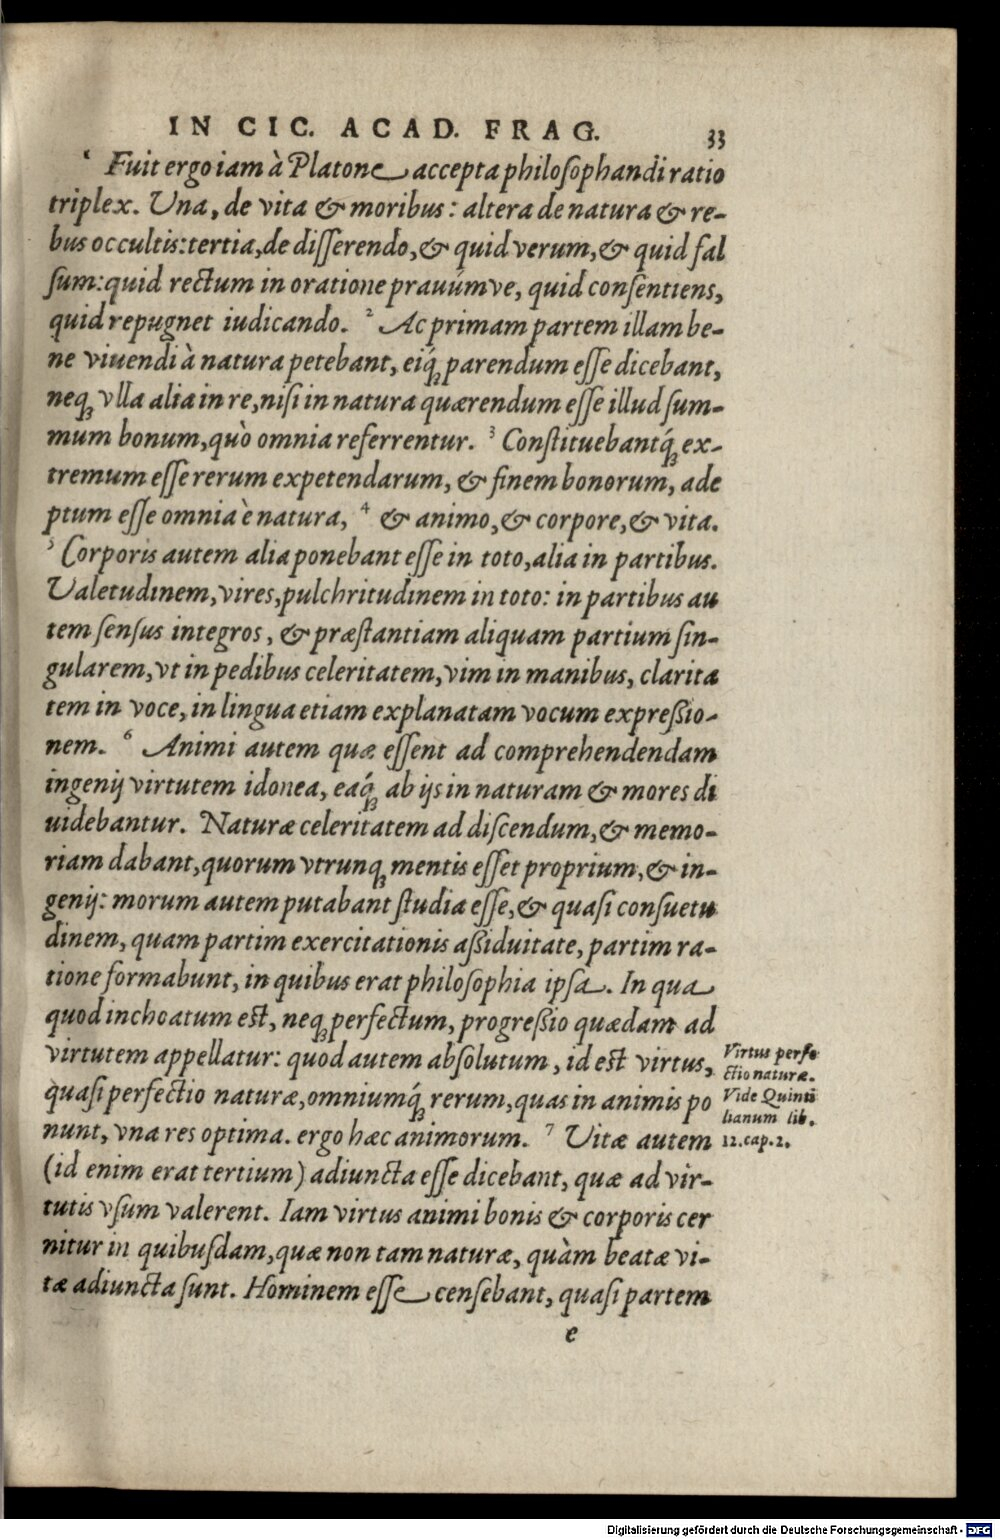 IN CIC. ACAD. FRAG. 33
¹ Fuit ergo iam à Platone accepta philosophandi ratio
triplex. Vna, de vita & moribus: altera de natura & re-
bus occultis: tertia, de disserendo, & quid verum, & quid fal
sum: quid rectum in oratione prauúmve, quid consentiens,
quid repugnet iudicando. ² Ac primam partem illam be-
ne viuendi à natura petebant, eiq́; parendum esse dicebant,
neq; vlla alia in re, nisi in natura quærendum esse illud sum-
mum bonum, quò omnia referrentur. ³ Constituebantq́; ex-
tremum esse rerum expetendarum, & finem bonorum, ade
ptum esse omnia è natura, ⁴ & animo, & corpore, & vita.
⁵ Corporis autem alia ponebant esse in toto, alia in partibus.
Valetudinem, vires, pulchritudinem in toto: in partibus au
tem sensus integros, & præstantiam aliquam partium sin-
gularem, vt in pedibus celeritatem, vim in manibus, clarita
tem in voce, in lingua etiam explanatam vocum expreßio-
nem. ⁶ Animi autem quæ essent ad comprehendendam
ingenij virtutem idonea, eaq́; ab ijs in naturam & mores di
uidebantur. Naturæ celeritatem ad discendum, & memo-
riam dabant, quorum vtrunq; mentis esset proprium, & in-
genij: morum autem putabant studia esse, & quasi consuetu
dinem, quam partim exercitationis aßiduitate, partim ra-
tione formabunt, in quibus erat philosophia ipsa. In qua
quod inchoatum est, neq; perfectum, progreßio quædam ad
virtutem appellatur: quod autem absolutum, id est virtus,
quasi perfectio naturæ, omniumq́; rerum, quas in animis po
nunt, vna res optima. ergo hæc animorum. ⁷ Vitæ autem
(id enim erat tertium) adiuncta esse dicebant, quæ ad vir-
tutis vsum valerent. Iam virtus animi bonis & corporis cer
nitur in quibusdam, quæ non tam naturæ, quàm beatæ vi-
tæ adiuncta sunt. Hominem esse censebant, quasi partem
e
Virtus perfe
ctio naturæ.
Vide Quinti
lianum lib.
12. cap. 2.
Digitalisierung gefördert durch die Deutsche Forschungsgemeinschaft - DFG